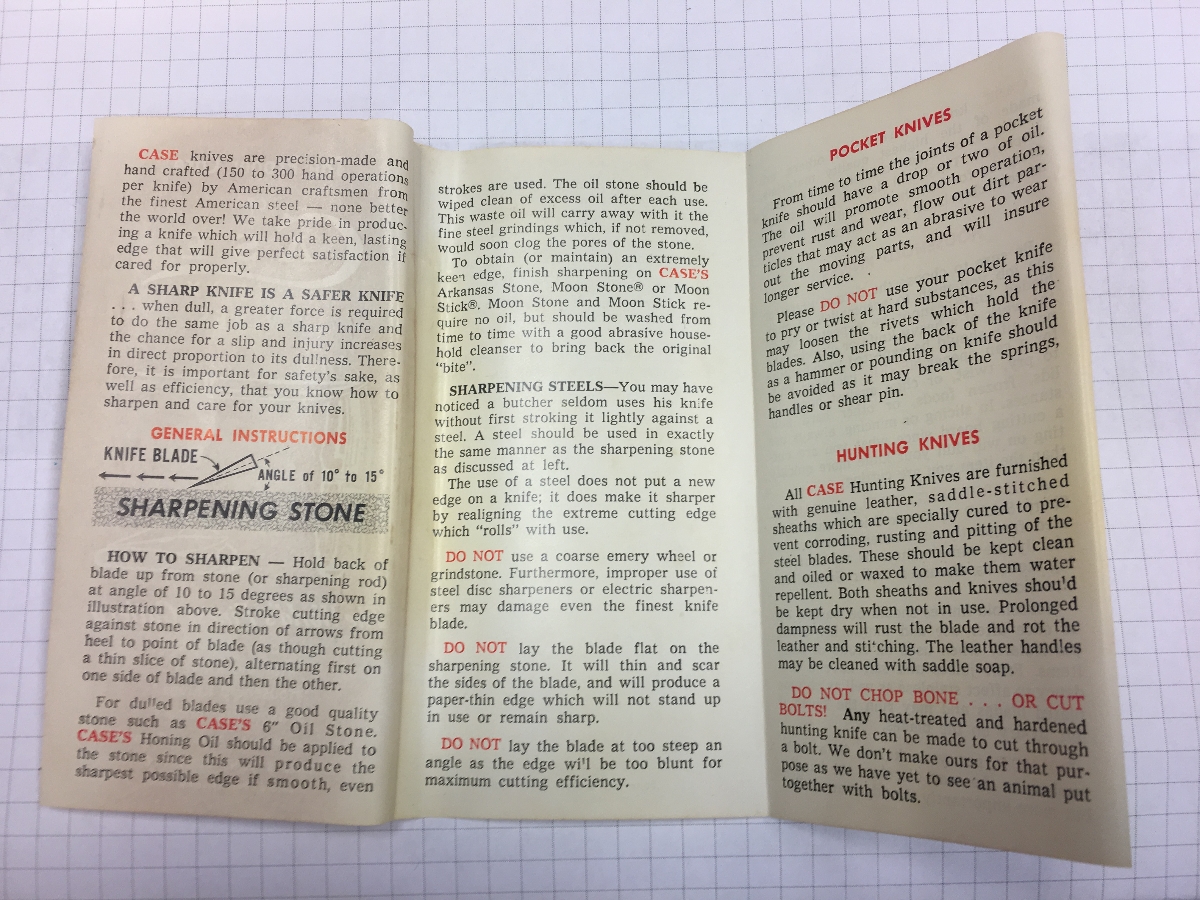 CASE knives are precision-made and
hand crafted (150 to 300 hand operations
per knife) by American craftsmen from
the finest American steel — none better
the world over! We take pride in produc-
ing a knife which will hold a keen, lasting
edge that will give perfect satisfaction if
cared for properly.
A SHARP KNIFE IS A SAFER KNIFE
. . . when dull, a greater force is required
to do the same job as a sharp knife and
the chance for a slip and injury increases
in direct proportion to its dullness. There-
fore, it is important for safety's sake, as
well as efficiency, that you know how to
sharpen and care for your knives.
GENERAL INSTRUCTIONS
KNIFE BLADE
ANGLE of 10° to 15°
SHARPENING STONE
HOW TO SHARPEN — Hold back of
blade up from stone (or sharpening rod)
at angle of 10 to 15 degrees as shown in
illustration above. Stroke cutting edge
against stone in direction of arrows from
heel to point of blade (as though cutting
a thin slice of stone), alternating first on
one side of blade and then the other.
For dulled blades use a good quality
stone such as CASE'S 6" Oil Stone.
CASE'S Honing Oil should be applied to
the stone since this will produce the
sharpest possible edge if smooth, even
strokes are used. The oil stone should be
wiped clean of excess oil after each use.
This waste oil will carry away with it the
fine steel grindings which, if not removed,
would soon clog the pores of the stone.
To obtain (or maintain) an extremely
keen edge, finish sharpening on CASE'S
Arkansas Stone, Moon Stone® or Moon
Stick®, Moon Stone and Moon Stick re-
quire no oil, but should be washed from
time to time with a good abrasive house-
hold cleanser to bring back the original
"bite".
SHARPENING STEELS—You may have
noticed a butcher seldom uses his knife
without first stroking it lightly against a
steel. A steel should be used in exactly
the same manner as the sharpening stone
as discussed at left.
The use of a steel does not put a new
edge on a knife; it does make it sharper
by realigning the extreme cutting edge
which "rolls" with use.
DO NOT use a coarse emery wheel or
grindstone. Furthermore, improper use of
steel disc sharpeners or electric sharpen-
ers may damage even the finest knife
blade.
DO NOT lay the blade flat on the
sharpening stone. It will thin and scar
the sides of the blade, and will produce a
paper-thin edge which will not stand up
in use or remain sharp.
DO NOT lay the blade at too steep an
angle as the edge wi'l be too blunt for
maximum cutting efficiency.
POCKET KNIVES
From time to time the joints of a pocket
knife should have a drop or two of oil.
The oil will promote smooth operation,
prevent rust and wear, flow out dirt par-
ticles that may act as an abrasive to wear
out the moving parts, and will insure
longer service.
Please DO NOT use your pocket knife
to pry or twist at hard substances, as this
may loosen the rivets which hold the
blades. Also, using the back of the knife
as a hammer or pounding on knife should
be avoided as it may break the springs,
handles or shear pin.
HUNTING KNIVES
All CASE Hunting Knives are furnished
with genuine leather, saddle-stitched
sheaths which are specially cured to pre-
vent corroding, rusting and pitting of the
steel blades. These should be kept clean
and oiled or waxed to make them water
repellent. Both sheaths and knives shou'd
be kept dry when not in use. Prolonged
dampness will rust the blade and rot the
leather and sti'ching. The leather handles
may be cleaned with saddle soap.
DO NOT CHOP BONE . . . OR CUT
BOLTS! Any heat-treated and hardened
hunting knife can be made to cut through
a bolt. We don't make ours for that pur-
pose as we have yet to see an animal put
together with bolts.